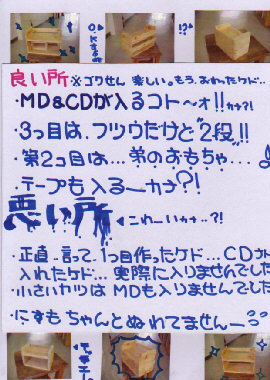 良い所 ※ゴワせん 楽しい。もう、おわったケド..
・MD&CDが入るコト〜ォ!!カナ?!
・3つ目は、フツウだけど"2段"!!
・第2コ目は...弟のおもちゃ...
・テープも入る—カナ?!
悪い所 ◀これーいカナ..?!
・正直、言って、1つ目作ったケド...CDが
入れたケド...実際に入りませんでした
・小さいヤツは MDも入りませんでした
・にすも ちゃんとぬれてませんー